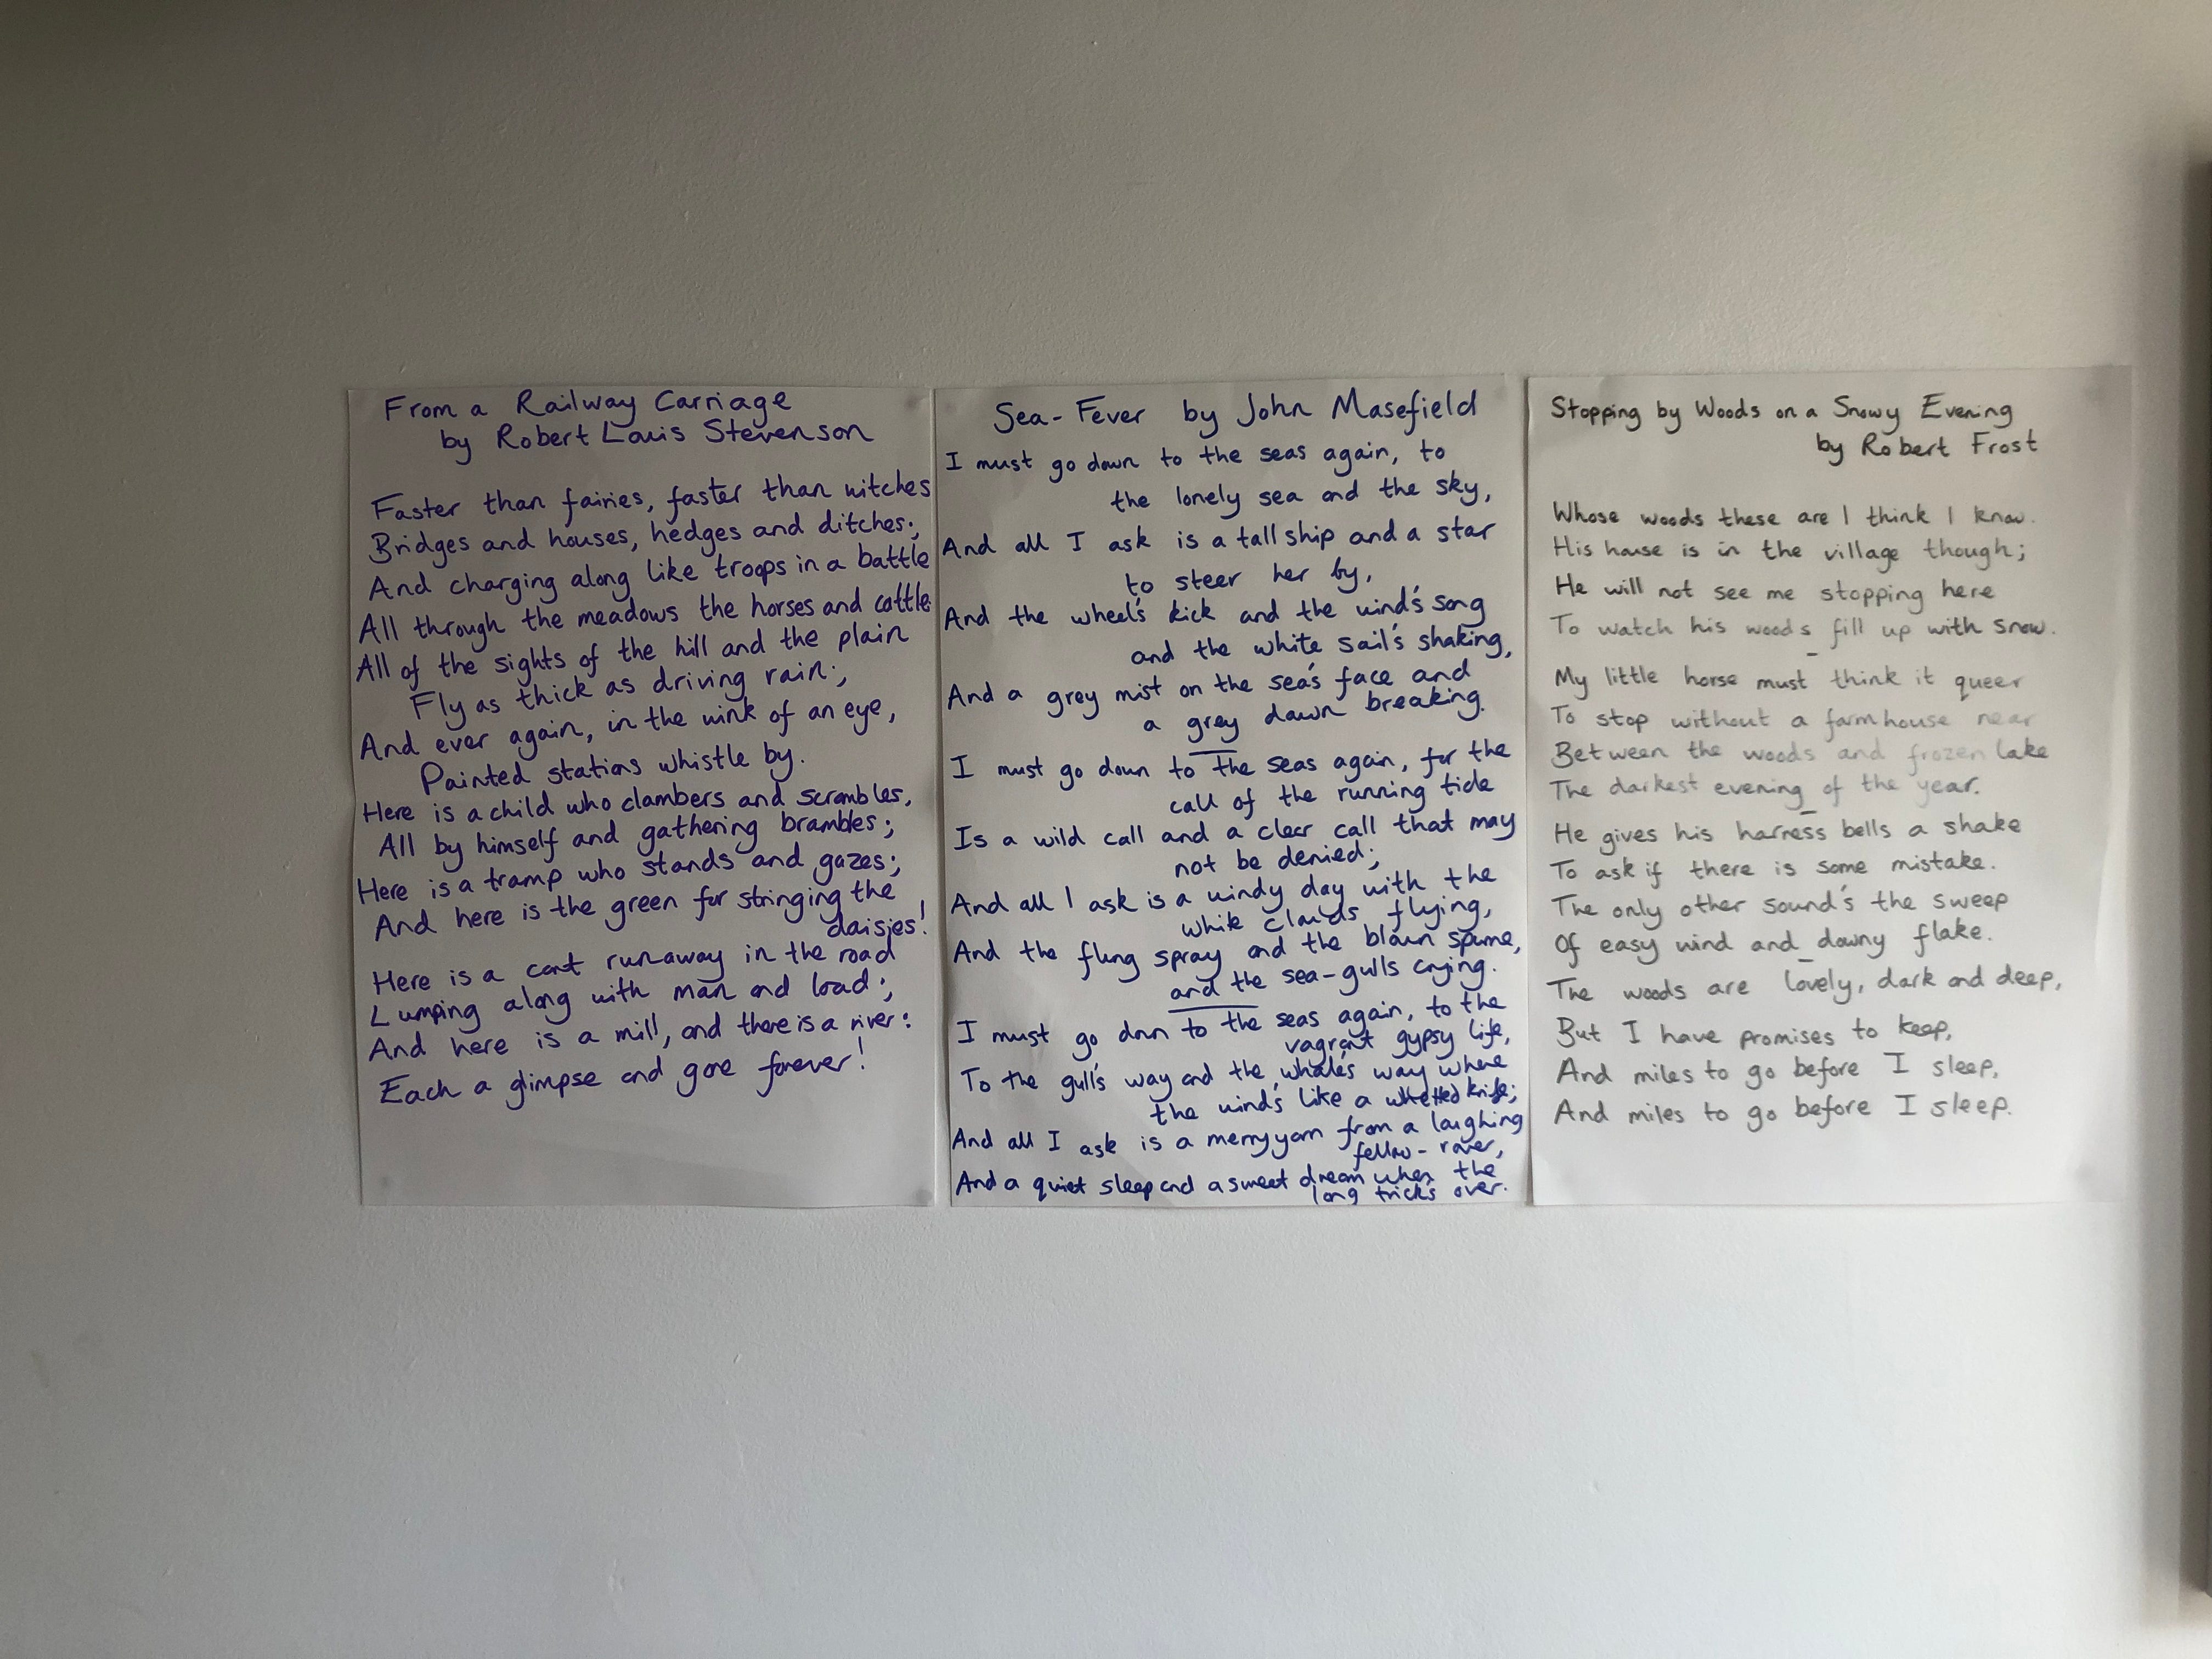 From a Railway Carriage
by Robert Louis Stevenson
Faster than fairies, faster than witches
Bridges and houses, hedges and ditches;
And charging along like troops in a battle
All through the meadows the horses and cattle
All of the sights of the hill and the plain
Fly as thick as driving rain;
And ever again, in the wink of an eye,
Painted stations whistle by.
Here is a child who clambers and scrambles,
All by himself and gathering brambles;
Here is a tramp who stands and gazes;
And here is the green for stringing the
daisies!
Here is a cart runaway in the road
Lumping along with man and load;
And here is a mill, and there is a river:
Each a glimpse and gone forever!
Sea-Fever by John Masefield
I must go down to the seas again, to
the lonely sea and the sky,
And all I ask is a tall ship and a star
to steer her by,
And the wheel's kick and the wind's song
and the white sail's shaking,
And a grey mist on the sea's face and
a grey dawn breaking.
I must go down to the seas again, for the
call of the running tide
Is a wild call and a clear call that may
not be denied;
And all I ask is a windy day with the
white clouds flying,
And the flung spray and the blown spume,
and the sea-gulls crying.
I must go down to the seas again, to the
vagrant gypsy life,
To the gull's way and the whale's way where
the wind's like a whetted knife;
And all I ask is a merry yarn from a laughing
fellow-rover,
And a quiet sleep and a sweet dream when the
long trick's over.
Stopping by Woods on a Snowy Evening
by Robert Frost
Whose woods these are I think I know.
His house is in the village though;
He will not see me stopping here
To watch his woods fill up with snow.
My little horse must think it queer
To stop without a farmhouse near
Between the woods and frozen lake
The darkest evening of the year.
He gives his harness bells a shake
To ask if there is some mistake.
The only other sound's the sweep
Of easy wind and downy flake.
The woods are lovely, dark and deep,
But I have promises to keep,
And miles to go before I sleep,
And miles to go before I sleep.